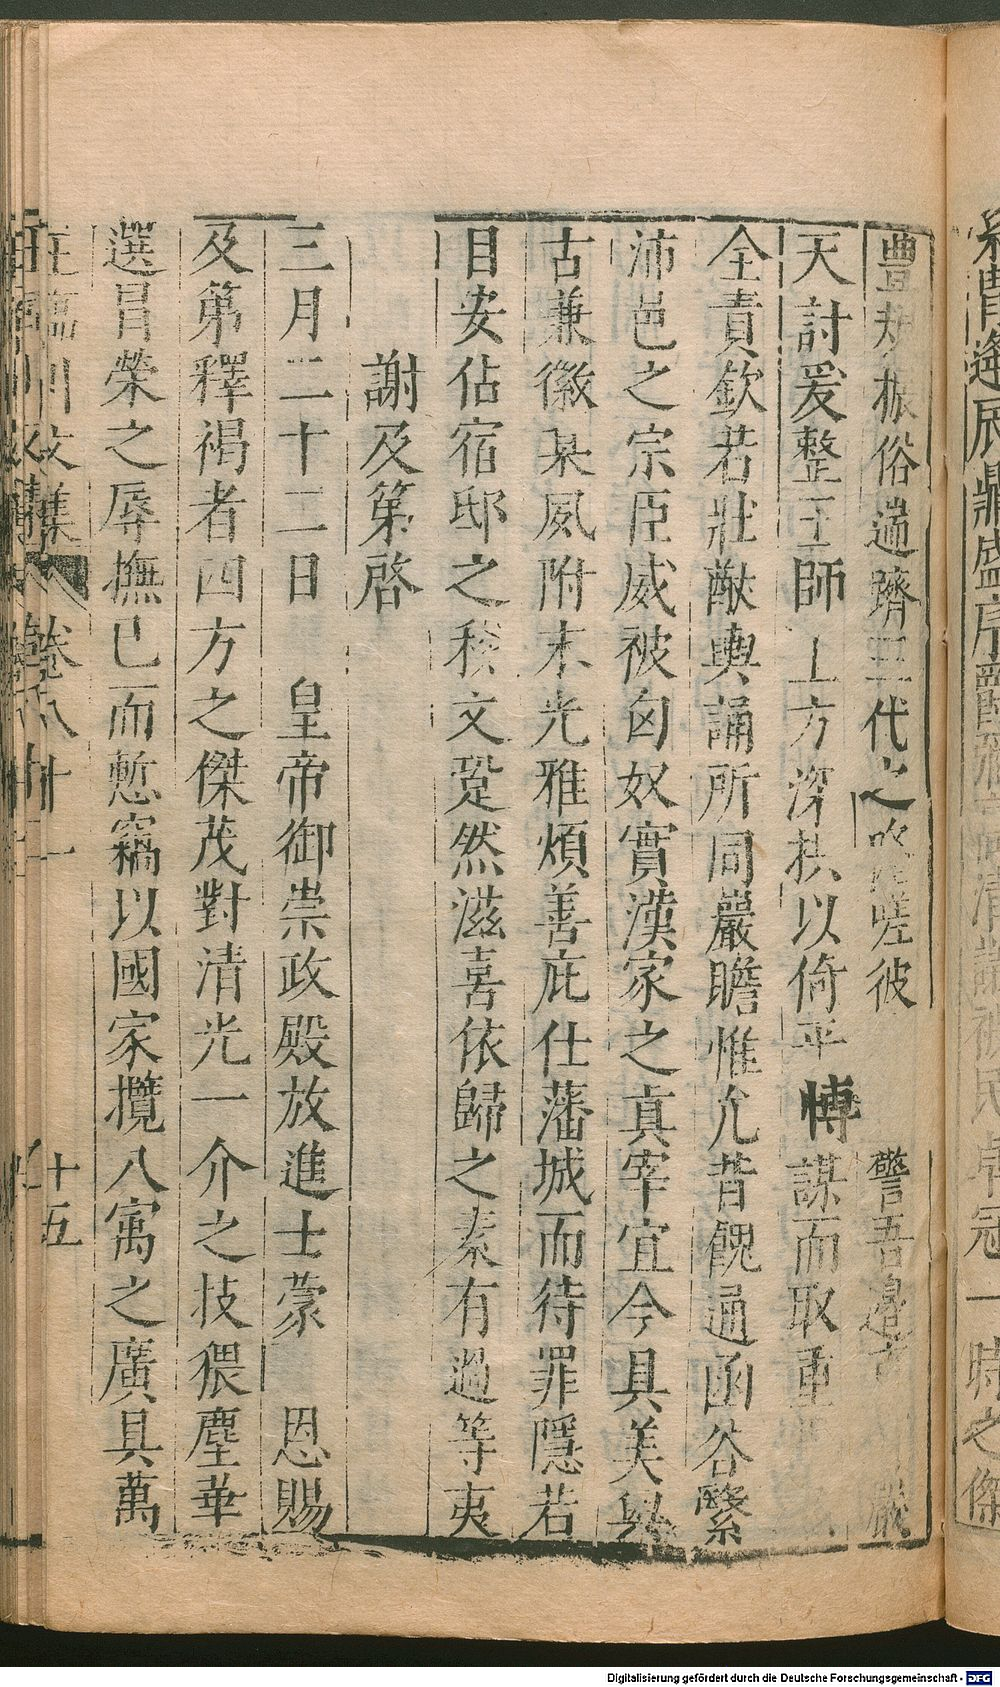 振俗遄躋三代之 嗟彼 警吾邊 嚴
天討爰整王師上方深拱以倚平博謀而取重
全責欽若壯猷輿誦所同巖瞻惟允昔餽通函谷繄
沛邑之宗臣威被匈奴實漢家之真宰宜今具美以
古兼徽某夙附末光雅煩善庇仕藩城而待罪隱若
目安佔宿邸之移文跫然滋喜依歸之素有過等夷
謝及第啓
三月二十二日 皇帝御崇政殿放進士蒙 恩賜
及第釋褐者四方之傑茂對清光一介之技猥塵華
選冒榮之辱撫已而慙竊以國家攬八寓之廣具萬
卷八十二
十五
一時之傑
Digitalisierung gefördert durch die Deutsche Forschungsgemeinschaft - DFG